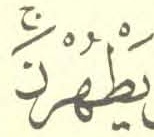 يَطْهُرْنَ ۚ